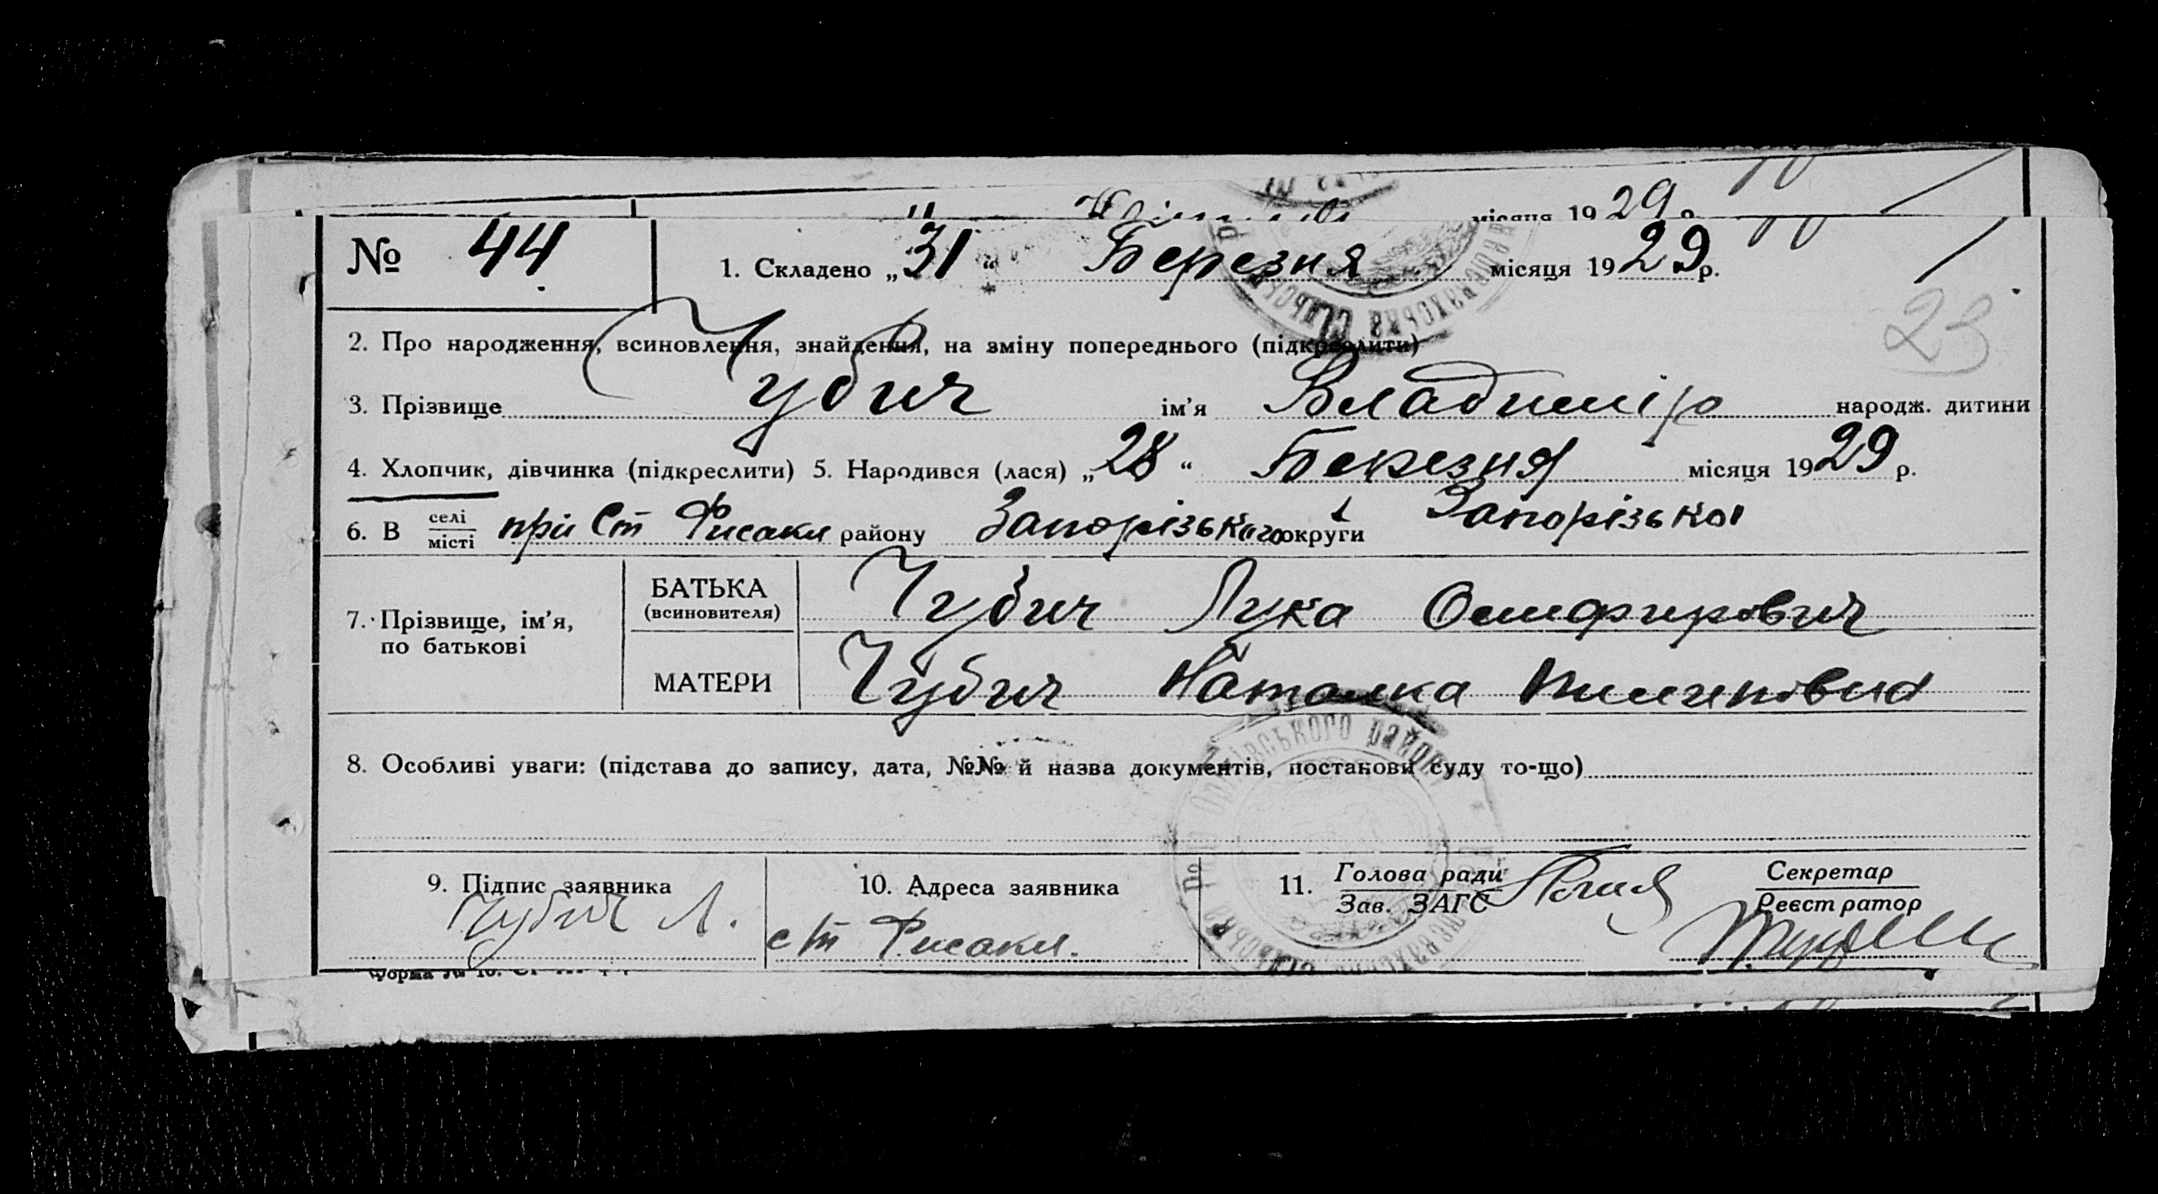 місяця 19 29 р.
№ 44 1. Складено „31“ Березня місяця 1929 р.
2. Про народження, всиновлення, знайдення, на зміну попереднього (підкреслити)
23
3. Прізвище Чубич ім'я Владимір народж. дитини
4. Хлопчик, дівчинка (підкреслити) 5. Народився (лася) „28“ Березня місяця 1929 р.
6. В селі місті при Ст Фисаки району Запорізького округи Запорізької
7. Прізвище, ім'я, по батькові
БАТЬКА (всиновителя) Чубич Лука
МАТЕРИ Чубич Наталка
8. Особливі уваги: (підстава до запису, дата, №№ й назва документів, постанови суду то-що)
9. Підпис заявника 10. Адреса заявника 11. Голова ради Зав. ЗАГС Секретар Реєстратор
Чубич Л. ст Фисаки.
Форма №